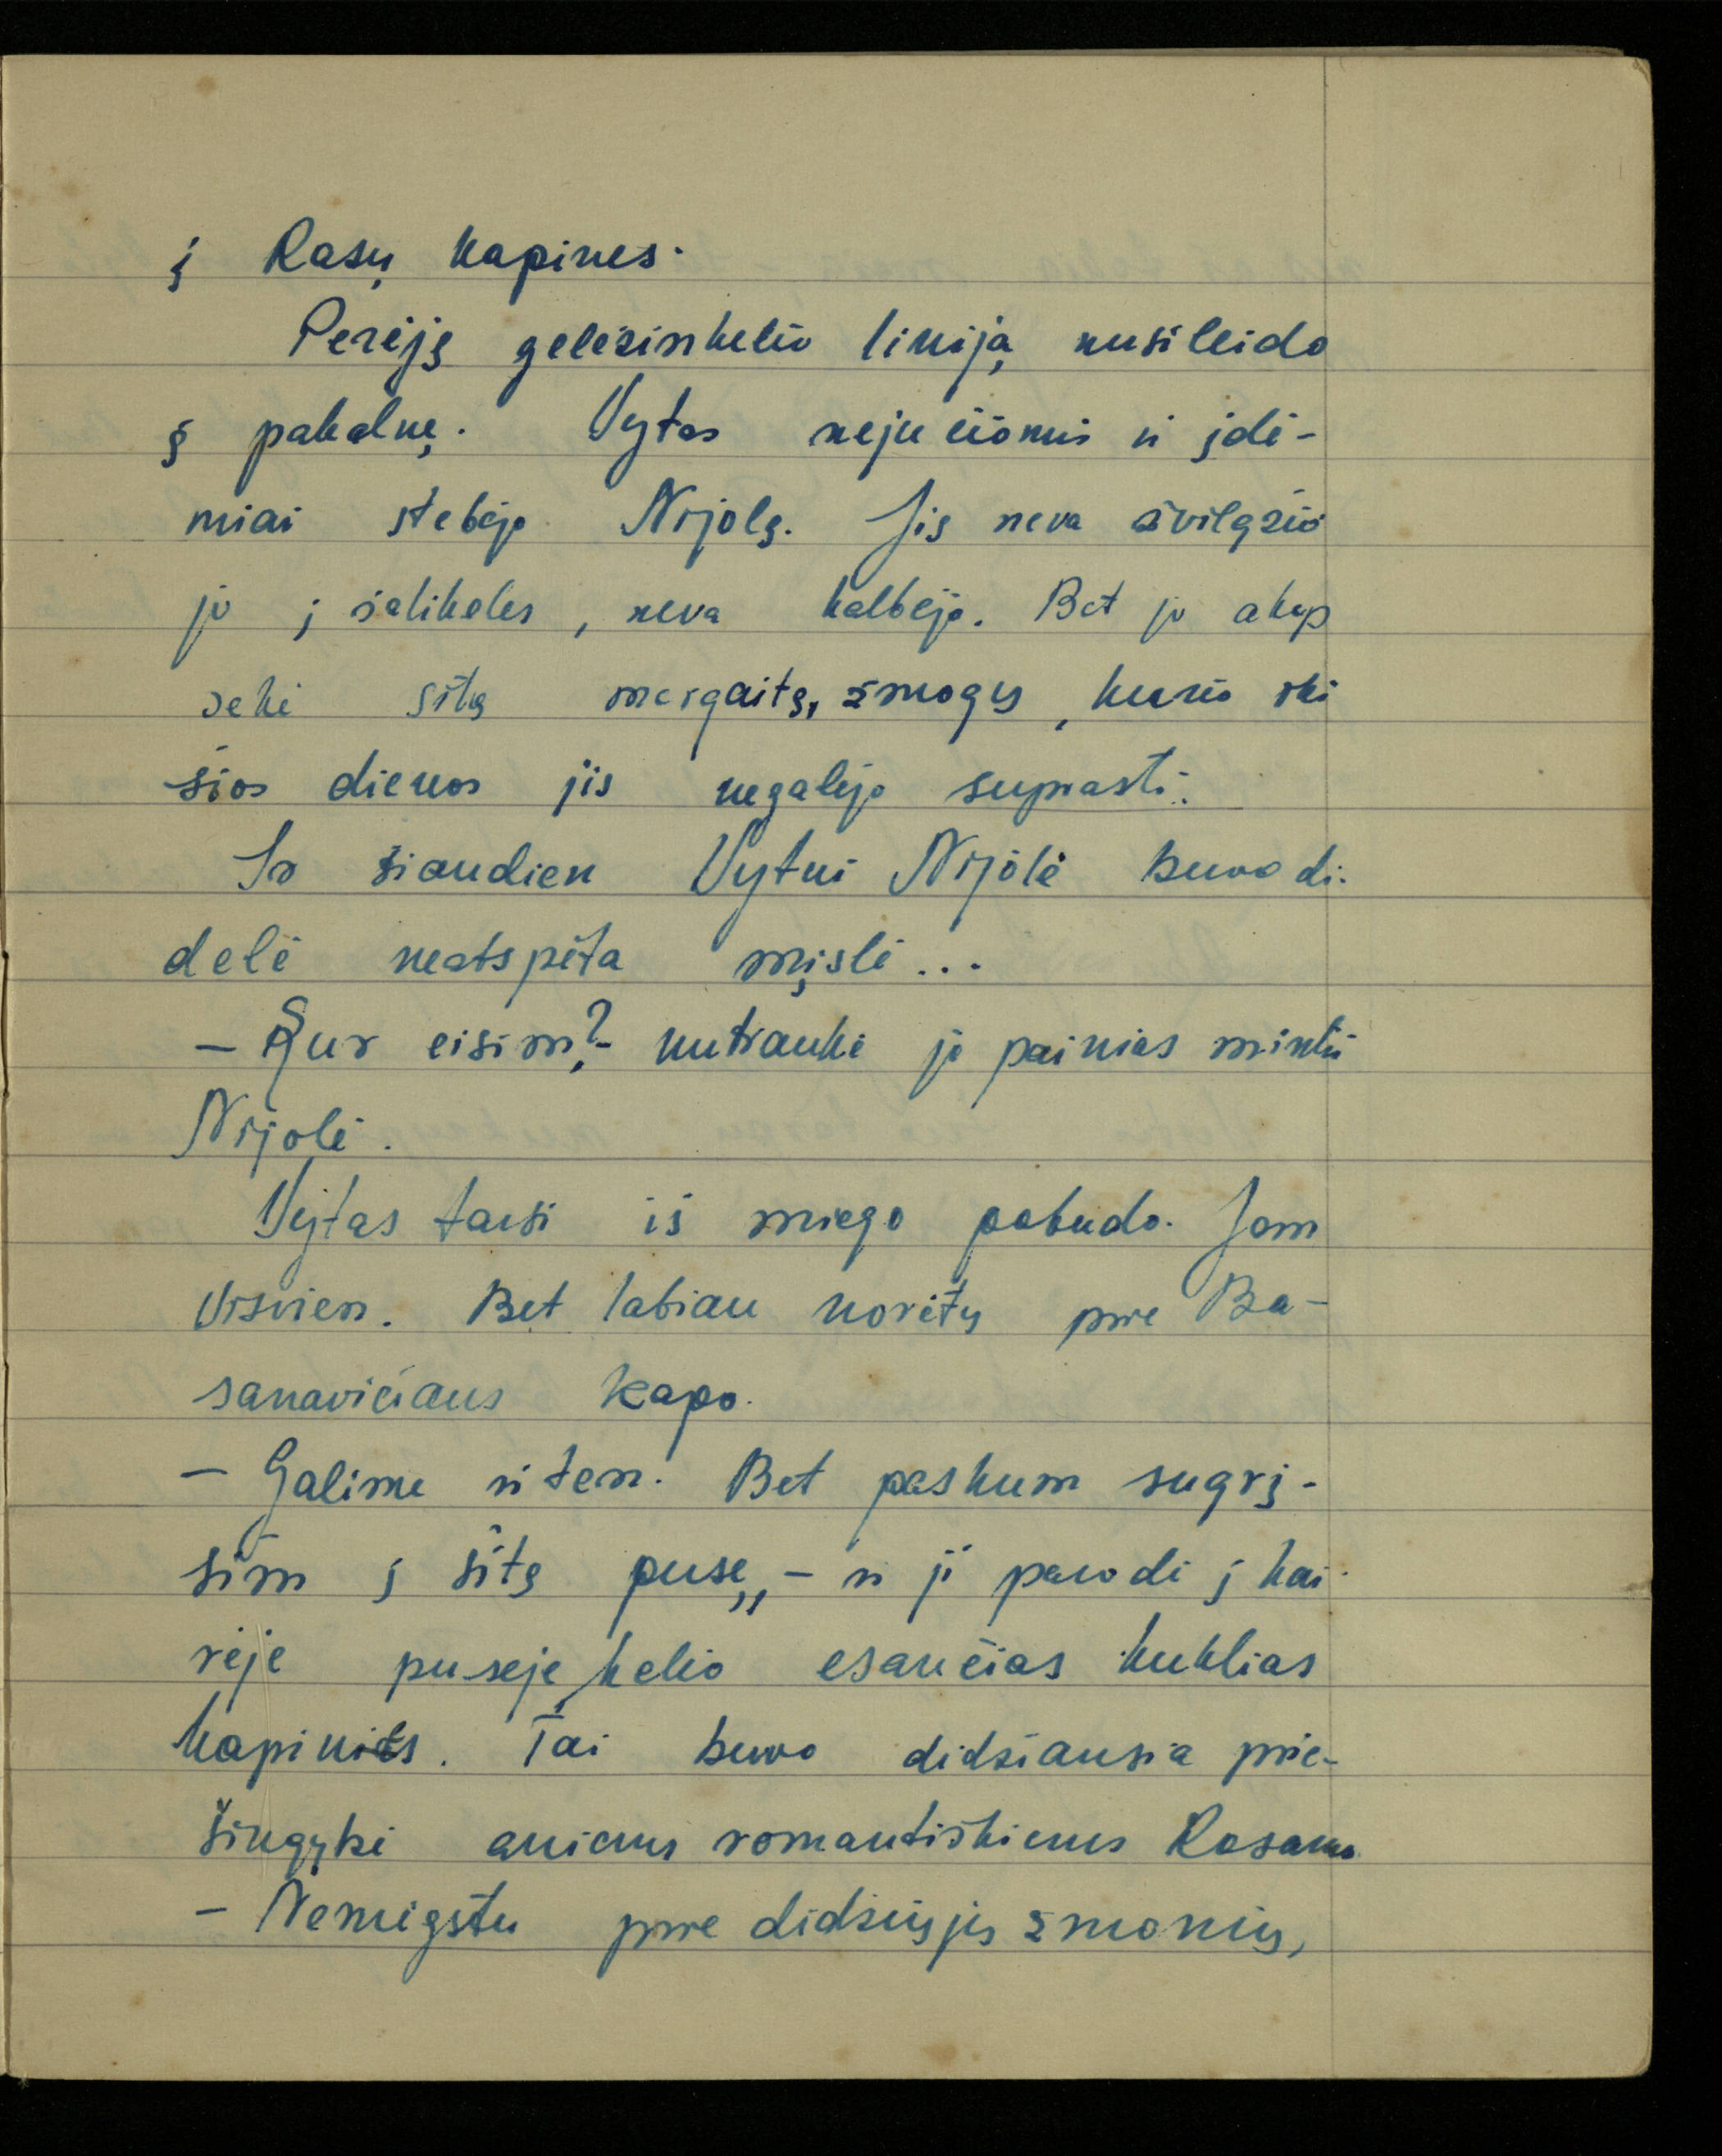 į Rasų kapines.
Perėję geležinkelio liniją nusileido
į pakalnę. Vytas nejučiomis ir įdė-
miai stebėjo Nijolę. Jis neva žvilgčio
jo į šalikeles, neva kalbėjo. Bet jo akys
sekė šitą mergaitę, žmogų, kurio iki
šios dienos jis negalėjo suprasti.
Ir šiandien Vytui Nijolė buvo di-
delė neatspėta mįslė...
- Kur eisim? - nutraukė jo painias mintis
Nijolė.
Vytas tarsi iš miego pabudo. Jam
visvien. Bet labiau norėtų prie Ba-
sanavičiaus kapo.
- Galime ir ten. Bet paskum sugrį-
šim į šitą pusę, - ir ji parodė į kai-
rėje pusėje kelio esančias kuklias
kapines. Tai buvo didžiausia prie-
šingybė aniems romantiškiems Rasams.
- Nemėgstu prie didžiųjų žmonių,